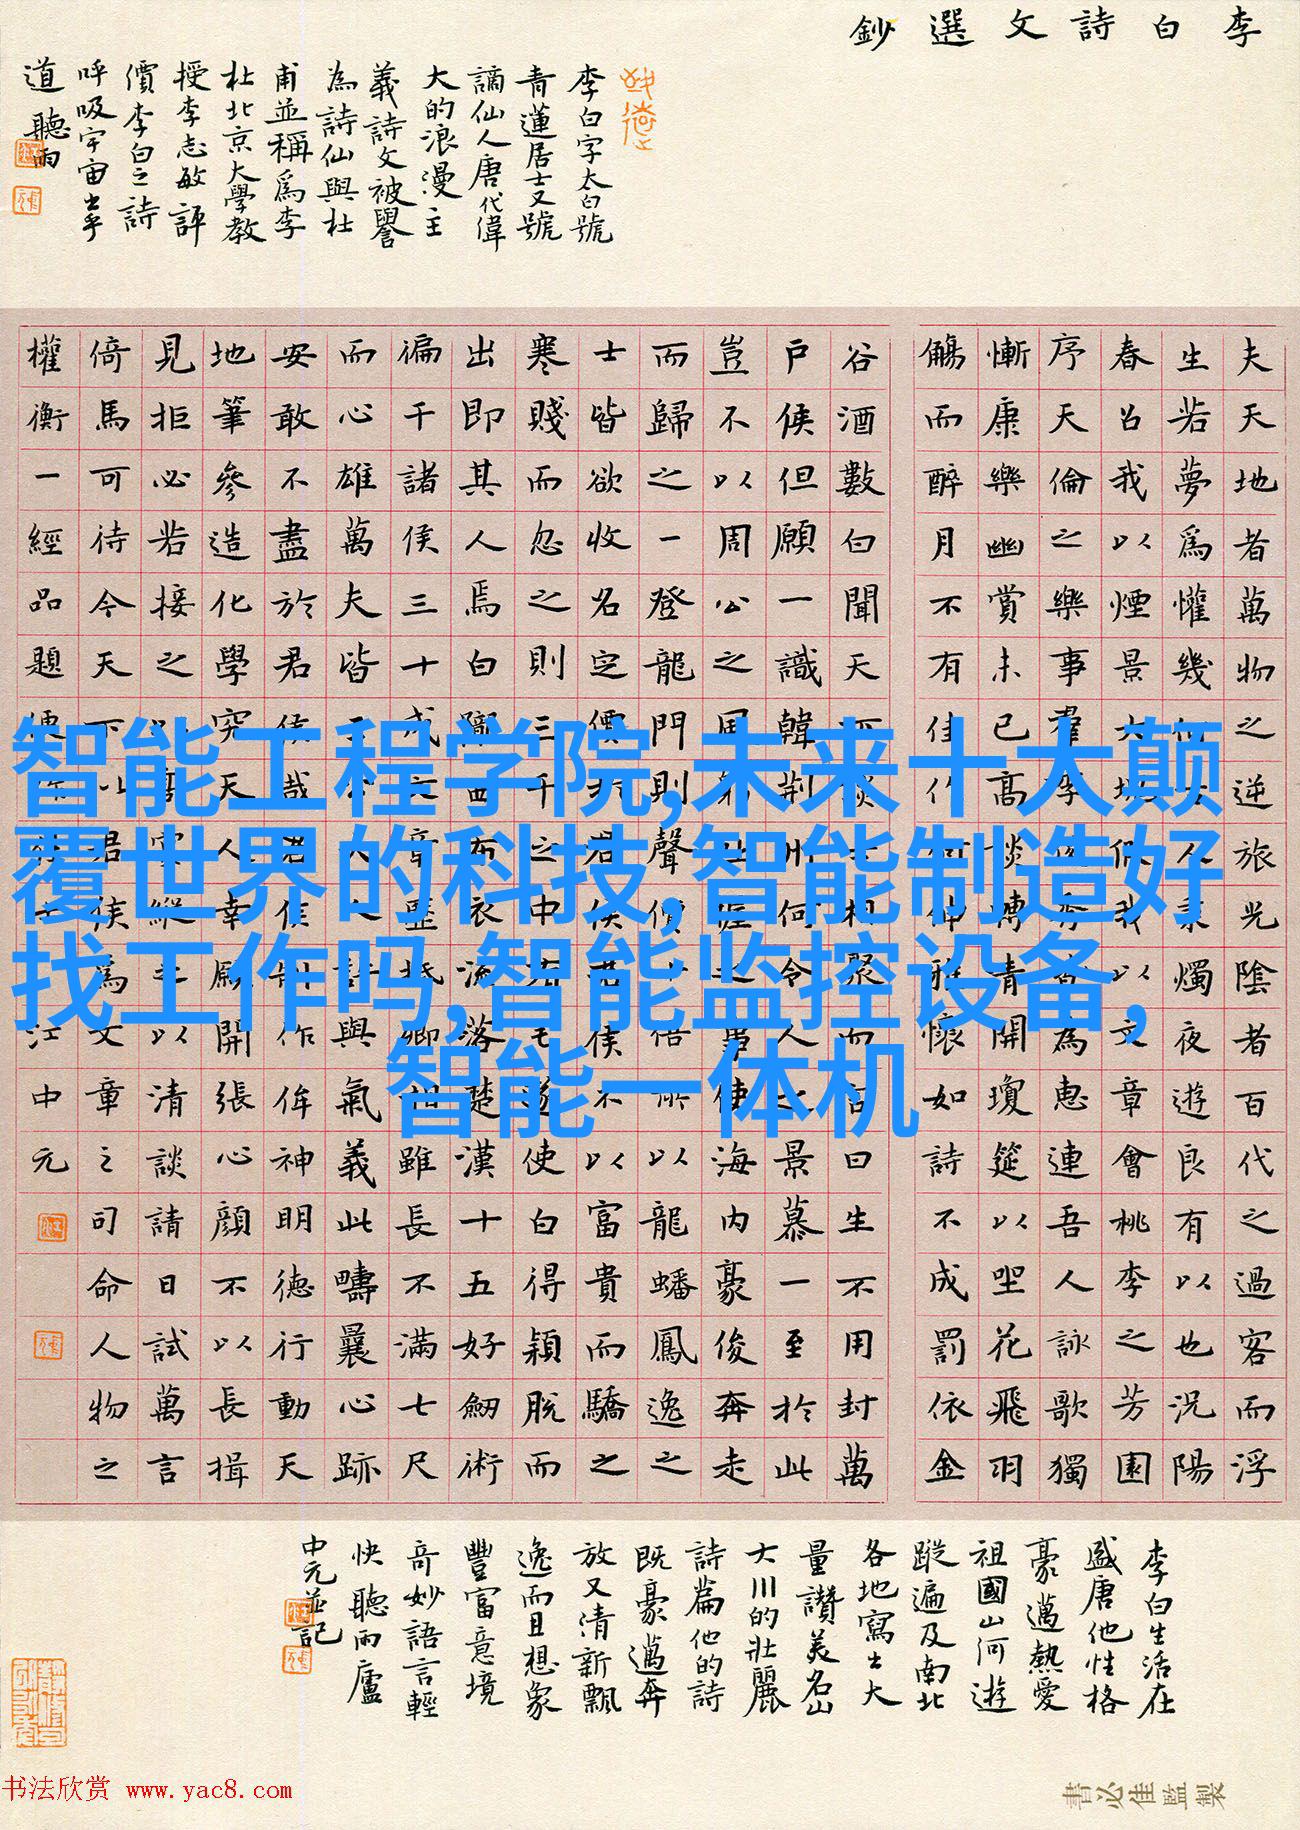 李白詩文選鈔
李白字太白號
青蓮居士又號
謫仙人唐代偉
大的浪漫主
義詩文被譽
為詩仙與杜
甫並稱爲李
杜北京大學教
授李志敏評
價李白之詩
呼吸宇宙出乎
道聽雨
夫天地者萬物之逆旅光陰者百代之過客而浮
生若夢爲懽幾何古人秉燭夜遊良有以也況陽
春召我以煙景大塊假我以文章會桃李之芳園
序天倫之樂事羣季俊秀為惠連吾人詠歌獨
慚康樂幽賞未已高談轉清開瓊筵以坐花飛羽
觴而醉月不有佳作何伸雅懷如詩不成罰依金
谷酒數白聞天下談士相聚而言曰生不用封萬
戶侯但願一識韓荊州何令人之景慕一至於此
豈不以周公之風躬吐握之事使海內豪俊奔走
而歸之一登龍門則聲價十倍所以龍蟠鳳逸之
士皆欲收名定價於君侯君侯不以富貴而驕之
寒賤而忽之則三千之中有毛遂使白得穎脫而
出即其人焉白隴西布衣流落楚漢十五好劒術
徧干諸侯三十成文章歷抵卿相雖長不滿七尺
而心雄萬夫皆王公大人許與氣義此疇曩心跡
安敢不盡於君侯哉君侯制作侔神明德行動天
地筆參造化學究天人幸願開張心顏不以長揖
見拒必若接之以高宴縱之以清談請日試萬言
倚馬可待今天下以君侯為文章之司命人物之
權衡一經品題便作佳士江中元
智能工程学院,未来十大颠
覆世界的科技,智能制造好
找工作吗,智能监控设备,
智能一体机
李白生活在
盛唐他性格
豪邁熱愛
祖國山河遊
蹤遍及南北
各地寫出大
量讚美名山
大川的壯麗
詩篇他的詩
既豪邁奔
放又清新飄
逸而且想象
豐富意境
奇妙語言輕
快聽雨廬
中元並記
书法欣赏 www.yac8.com
書必佳監製